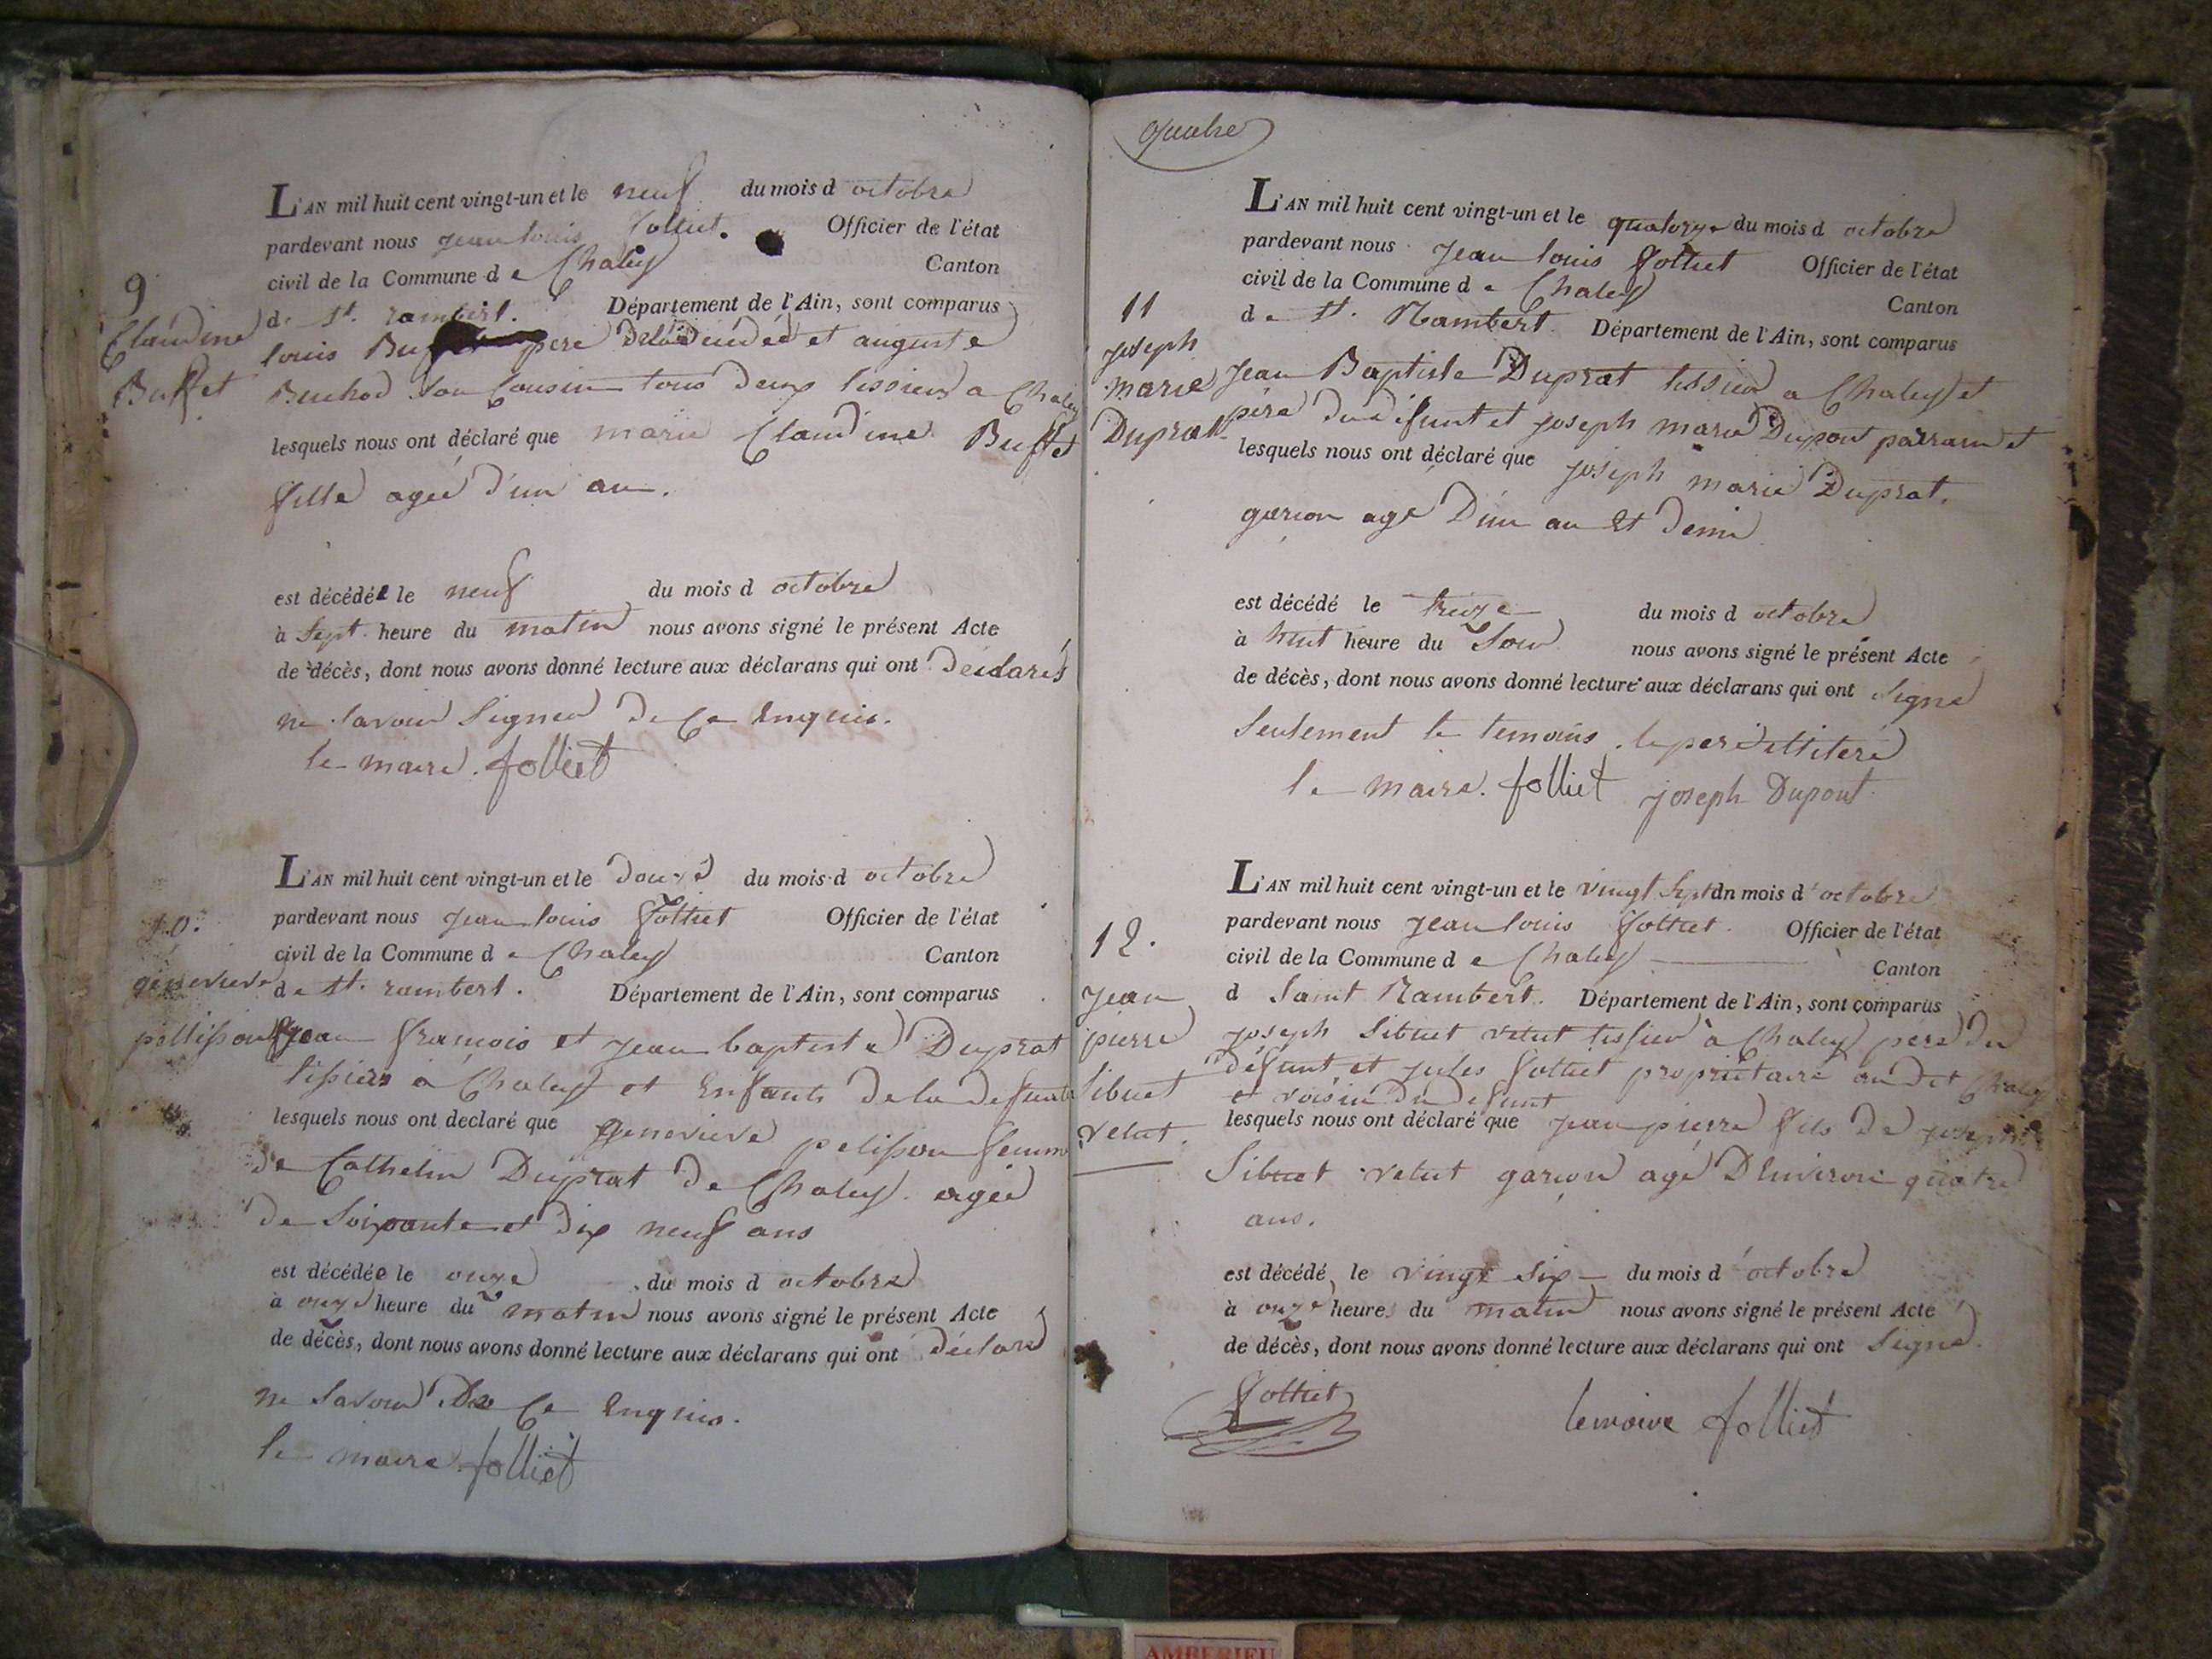 L'AN mil huit cent vingt-un et le neuf du mois d octobre
pardevant nous jean louis folliet. Officier de l'état
civil de la Commune d e Chaley Canton
de st. rambert. Département de l'Ain, sont comparus
9
Claudine
Buffet
louis père et auguste
son Cousin tous deux tissiers a Chaley
lesquels nous ont déclaré que marie Claudine Buffet
fille agée d'un an.
est décédée le neuf du mois d octobre
à sept heure du matin nous avons signé le présent Acte
de décès, dont nous avons donné lecture aux déclarans qui ont déclarés
ne savoir signer de Ce Enquis.
le maire. folliet
L'AN mil huit cent vingt-un et le douze du mois d octobre
pardevant nous jean louis folliet Officier de l'état
civil de la Commune d e Chaley Canton
de st. rambert. Département de l'Ain, sont comparus
10.
genevieve
pellisson
jean francois et jean baptiste Duprat
tissiers a Chaley et Enfants de la defunte
lesquels nous ont declaré que genevieve pelisson femme
de Cathelin Duprat de Chaley. agée
de soixante et dix neuf ans
est décédée le onze du mois d octobre
à onze heure du matin nous avons signé le présent Acte
de décès, dont nous avons donné lecture aux déclarans qui ont déclaré
ne savoir De Ce Enquis.
le maire folliet
quatre
L'AN mil huit cent vingt-un et le quatorze du mois d octobre
pardevant nous jean louis folliet Officier de l'état
civil de la Commune d e Chaley Canton
de st. Rambert. Département de l'Ain, sont comparus
11
joseph
marie
Duprat
jean Baptiste Duprat tissier a Chaley et
père du défunt et joseph marie Dupont parrain et
lesquels nous ont déclaré que joseph marie Duprat.
garçon agé D'un an Et demi
est décédé le treize du mois d octobre
à huit heure du Soir nous avons signé le présent Acte
de décès, dont nous avons donné lecture aux déclarans qui ont signé
seulement le temoins. le père illiteré
le maire. folliet joseph Dupont
L'AN mil huit cent vingt-un et le vingt sept du mois d'octobre
pardevant nous jean louis folliet. Officier de l'état
civil de la Commune d e Chaley Canton
d Saint Rambert. Département de l'Ain, sont comparus
12.
jean
pierre
Sibuet
velut.
joseph Sibuet velut tissier à Chaley père du
défunt, et jules folliet propriétaire au dit Chaley
et voisin du defunt
lesquels nous ont déclaré que jean pierre fils de joseph
Sibuet velut garçon agé D'Environ quatre
ans.
est décédé le vingt six du mois d'octobre
à onze heures du matin nous avons signé le présent Acte
de décès, dont nous avons donné lecture aux déclarans qui ont signé.
folliet lemaire folliet
AMBERIEU